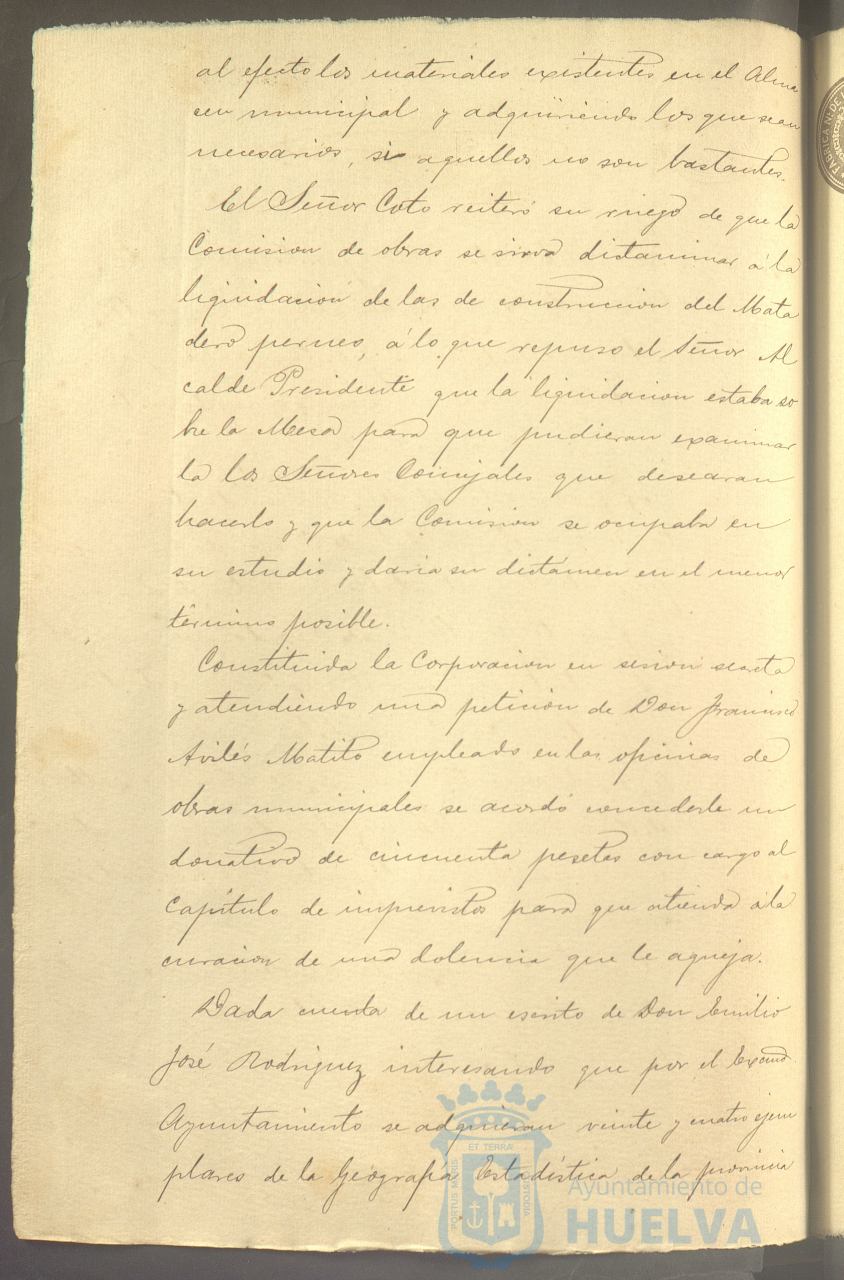 al efecto los materiales existentes en el Alma
cen municipal y adquiriendo los que sean
necesarios, si aquellos no son bastantes.
El Señor Coto reiteró su ruego de que la
Comision de obras se sirva dictaminar á la
liquidacion de las de construccion del Mata
dero perneo, á lo que repuso el Señor Al
calde Presidente que la liquidacion estaba so
bre la Mesa para que pudieran examinar
la los Señores Concejales que desearan
hacerlo y que la Comision se ocupaba en
su estudio y daria su dictámen en el menor
término posible.
Constituida la Corporacion en sesion secreta
y atendiendo una peticion de Don Francisco
Avilés Matito empleado en las oficinas de
obras municipales se acordó concederle un
donativo de cincuenta pesetas con cargo al
Capítulo de imprevistos para que atienda á la
curacion de una dolencia que le aqueja.
Dada cuenta de un escrito de Don Emilio
José Rodriguez interesando que por el Excmo.
Ayuntamiento se adquieran veinte y cuatro ejem
plares de la Geografía Estadística de la provincia
PORTUS MARIS ET TERRAE CUSTODIA
Ayuntamiento de
HUELVA